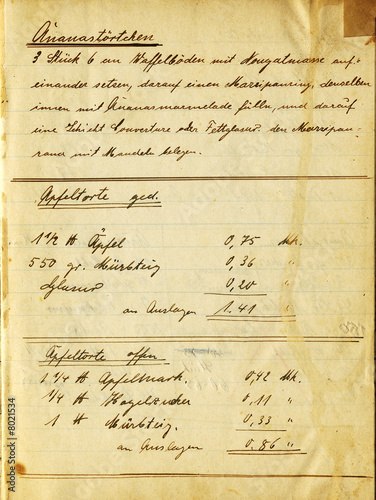 Ananastörtchen
3 Stück 6 cm Waffelböden mit Nougatmasse auf-
einander setzen, darauf einen Marzipanring, denselben
innen mit Ananasmarmelade fülln, und darauf
eine Schicht Couverture oder Fettglasur. den Marzipan-
rand mit Mandeln belegen.
Apfeltorte ged.
1 1/2 ℔ Äpfel 0,75 Mk.
550 gr. Mürbteig 0,36 "
Glasur 0,20 "
an Auslagen 1.41 "
Apfeltorte offen
1 1/4 ℔ Apfelmark. 0,42 Mk.
1/4 ℔ Hagelzucker 0,11 "
1 ℔ Mürbteig. 0,33 "
an Auslagen 0.86 "
Adobe Stock | #8021534